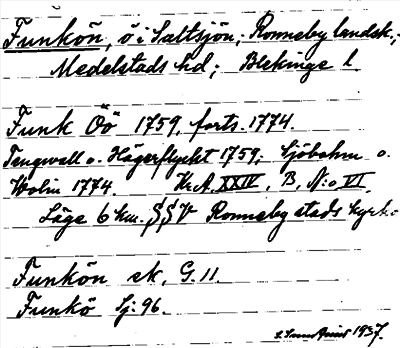 Funkön, ö i Saltsjön, Ronneby landsk.,
Medelstads hd; Blekinge l.
Funk Öö 1759, forts. 1774.
Tengwall o. Hägerflycht 1759; Sjöbohm o.
Wolin 1774. Kr.A. XXIV, B, N:o VI.
Läge 6 km. SSV Ronneby stads kyrk.
Funkön ek. G. 11.
Funkö Sj. 96.
1937.